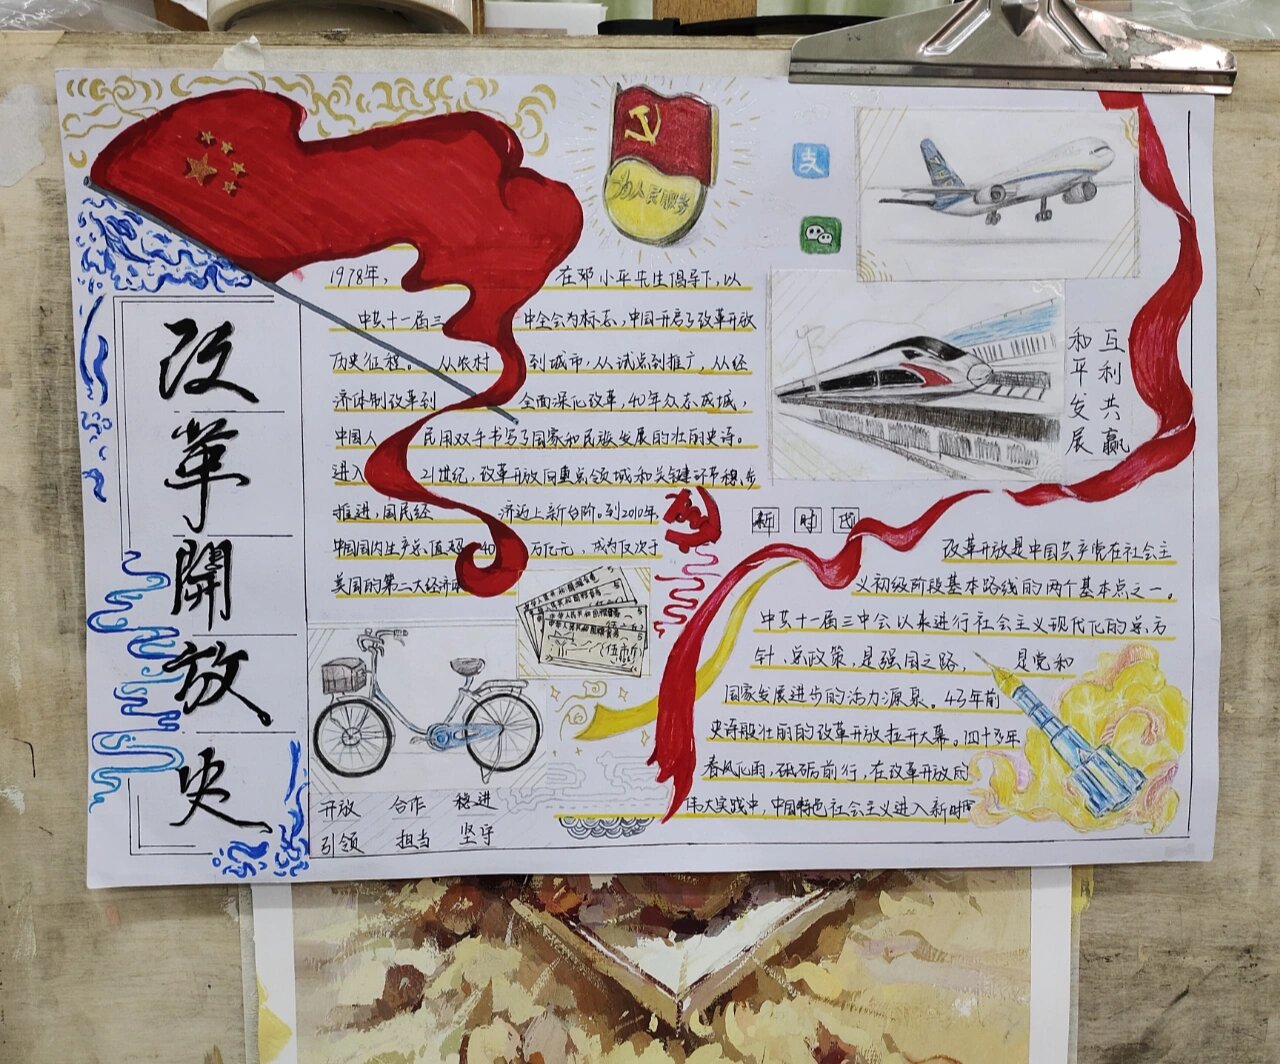 改革開放史
为人民服务
支
1978年，在邓小平先生倡导下，以
中共十一届三中全会为标志，中国开启了改革开放
历史征程。从农村到城市，从试点到推广，从经
济体制改革到全面深化改革，40年众志成城，
中国人民用双手书写了国家和民族发展的壮丽史诗。
进入21世纪，改革开放向重点领域和关键环节稳步
推进，国民经济迈上新台阶。到2010年，
中国国内生产总值超40万亿元，成为仅次于
美国的第二大经济体
伍市斤
开放 合作 稳进
引领 担当 坚守
互利共赢
和平发展
新时代
改革开放是中国共产党在社会主
义初级阶段基本路线的两个基本点之一。
中共十一届三中会以来进行社会主义现代化的总方
针、总政策，是强国之路，是党和
国家发展进步的活力源泉。43年前
史诗般壮丽的改革开放拉开大幕。四十多年
春风化雨，砥砺前行，在改革开放的
伟大实践中，中国特色社会主义进入新时